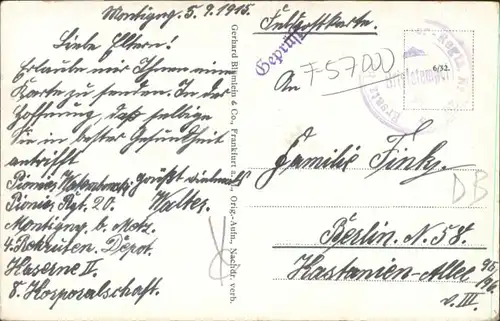 Montigny. 5.9.1915.
Liebe Eltern!
Erlaube mir Ihnen eine
Karte zu senden. In der
Hoffnung, daß selbige
Sie in bester Gesundheit
antrifft
Pionier grüßt vielmals
Pionier Rgt. 20. Walter.
Montigny b. Metz.
4. Rekruten Depot.
Kaserne II
8. Korporalschaft.
Gerhard Blümlein & Co., Frankfurt a. M., Orig.-Aufn., Nachdr. verb.
Feldpostkarte.
Geprüft
An 7-57000
6/32.
Briefstempel
Familie Finks.
DB
Berlin. N. 58.
Kastanien-Allee 95/96
v. III.